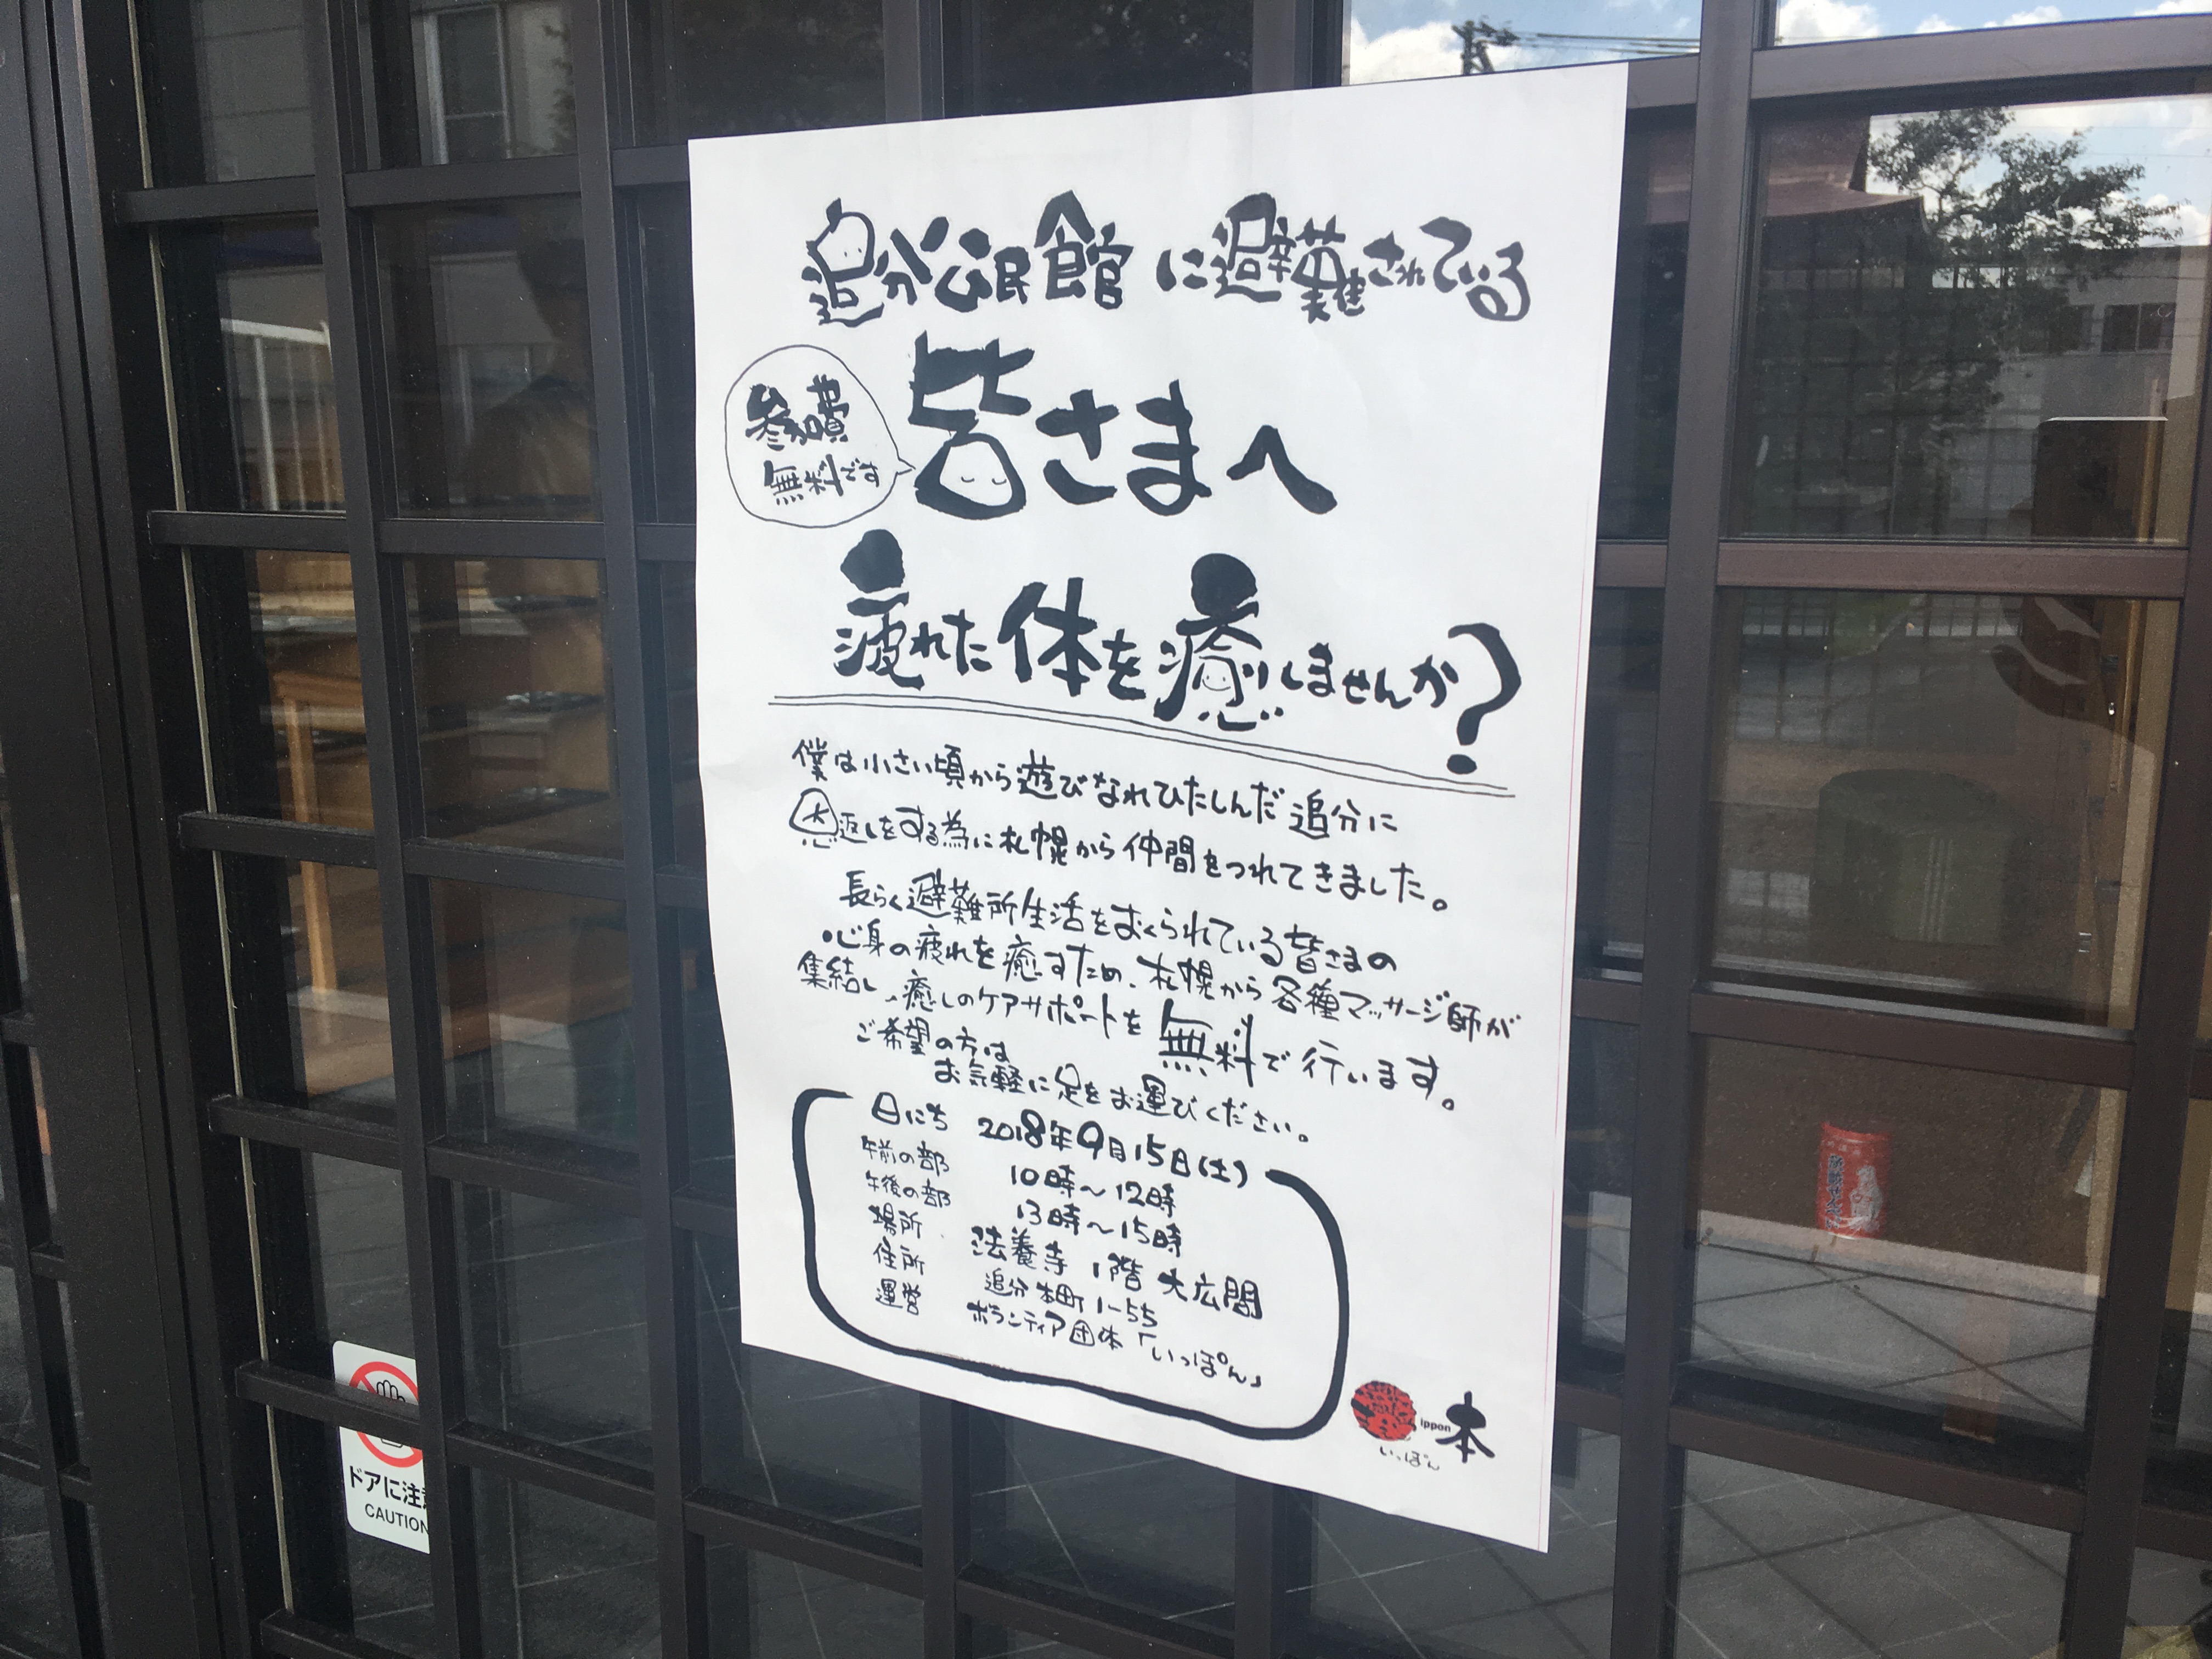 追分公民館に避難されている
参加費
無料です
皆さまへ
疲れた体を癒しませんか?
僕は小さい頃から遊びなれひたしんだ追分に
恩返しをする為に札幌から仲間をつれてきました。
長らく避難所生活をおくられている皆さまの
心身の疲れを癒すため、札幌から各種マッサージ師が
集結し、癒しのケアサポートを無料で行います。
ご希望の方は
お気軽に足をお運びください。
日にち 2018年9月15日(土)
午前の部 10時〜12時
午後の部 13時〜15時
場所 法養寺 1階 大広間
住所 追分本町1-55
運営 ボランティア団体「いっぽん」
ippon 本
いっぽん
ドアに注意
CAUTION